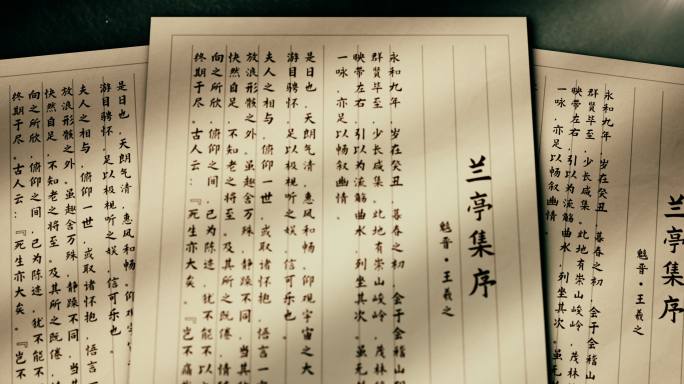 兰亭集序
魏晋·王羲之
永和九年,岁在癸丑,暮春之初,会于会稽山
群贤毕至,少长咸集。此地有崇山峻岭,茂林
映带左右,引以为流觞曲水,列坐其次。虽无
一咏,亦足以畅叙幽情。
兰亭集序
魏晋·王羲之
永和九年,岁在癸丑,暮春之初,会于会稽山
群贤毕至,少长咸集。此地有崇山峻岭,茂
映带左右,引以为流觞曲水,列坐其次。虽无
一咏,亦足以畅叙幽情。
是日也,天朗气清,惠风和畅。仰观宇宙之大
游目骋怀,足以极视听之娱,信可乐也。
夫人之相与,俯仰一世,或取诸怀抱,悟言一
放浪形骸之外。虽趣舍万殊,静躁不同,当其
快然自足,不知老之将至。及其所之既倦,情
向之所欣,俯仰之间,已为陈迹,犹不能不以
终期于尽。古人云:『死生亦大矣。』岂不痛
是日也,天朗气清,惠风和畅。仰观
游目骋怀,足以极视听之娱,信可乐也。
夫人之相与,俯仰一世,或取诸怀抱,悟言一
放浪形骸之外。虽趣舍万殊,静躁不同,当其
快然自足,不知老之将至。及其所之既倦,情
向之所欣,俯仰之间,已为陈迹,犹不能不
终期于尽。古人云:『死生亦大矣。』岂不